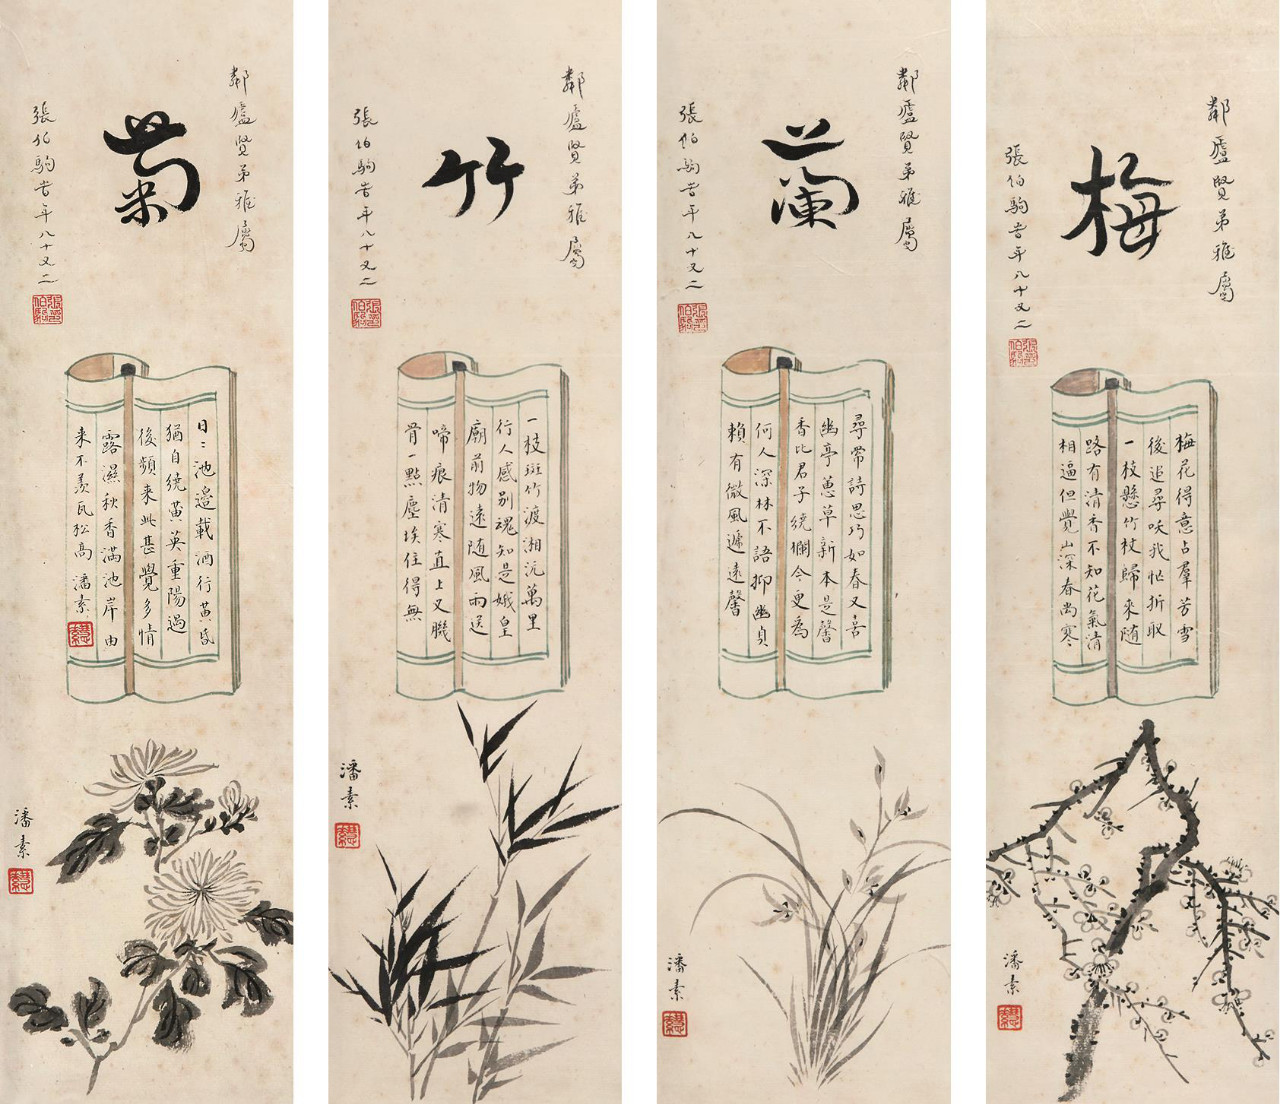 梅
鄰廬賢弟雅屬
張伯駒時年八十又二
梅花得意占羣芳雪
後追尋咲我忙折取
一枝懸竹杖歸來随
路有清香不知花氣清
相逼但覺山深春尚寒
潘素
蘭
鄰廬賢弟雅屬
張伯駒時年八十又二
尋常詩思巧如春又喜
幽亭蕙草新本是馨
香比君子繞欄今更為
何人深林不語抑幽貞
賴有微風遞遠馨
潘素
竹
鄰廬賢弟雅屬
張伯駒時年八十又二
一枝斑竹渡湘沅萬里
行人感别魂知是娥皇
廟前物遠随風雨送
啼痕清寒直上又機
骨一點塵埃住得無
潘素
菊
鄰廬賢弟雅屬
張伯駒時年八十又二
日〻池邉載酒行黄昏
猶自繞黄英重陽過
後頻来此甚覺多情
露濕秋香滿池岸由
来不羨瓦松高 潘素
潘素